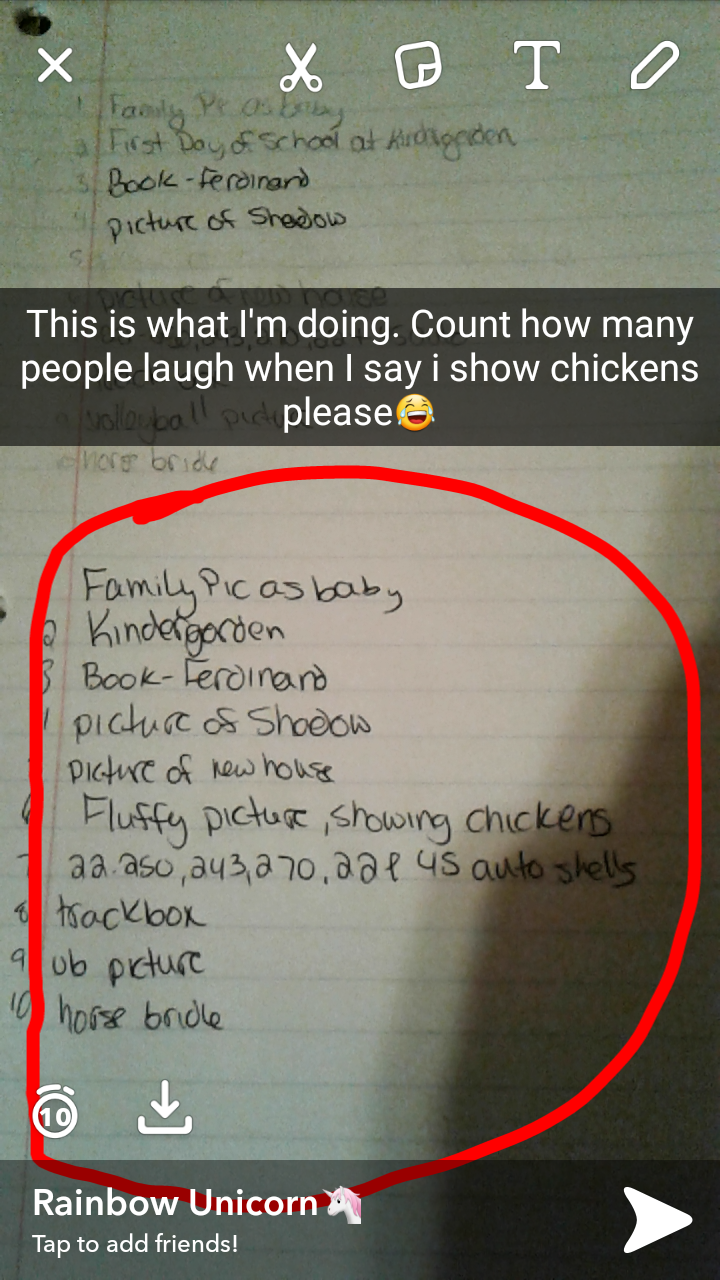 1 Family Pic as baby
2 First Day of School at Kindergarden
3 Book - Ferdinand
4 picture of Shadow
5
picture of new house
This is what I'm doing. Count how many
people laugh when I say i show chickens
please😂
volleyball picture
horse bridle
Family Pic as baby
2 Kindergarden
3 Book - Ferdinand
picture of Shadow
picture of new house
6 Fluffy picture, showing chickens
7 22.250, 243, 270, 22l 45 auto shells
8 trackbox
9 vb picture
10 horse bridle
10
Rainbow Unicorn🦄
Tap to add friends!
T